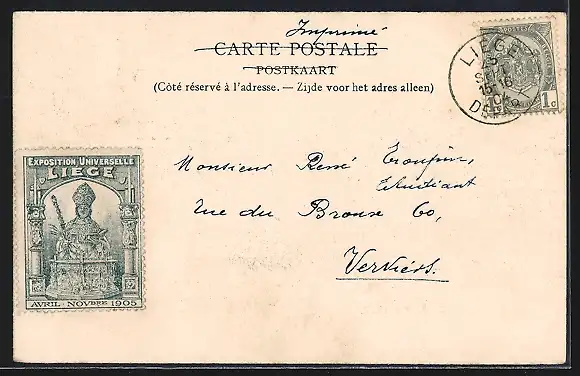 Imprimé
CARTE POSTALE
POSTKAART
(Côté réservé à l'adresse. — Zijde voor het adres alleen)
LIEGE
15-16
DEPART
1c
EXPOSITION UNIVERSELLE
LIEGE
AVRIL-NOVBRE 1905
Monsieur René
Etudiant
Rue du Brouse 60,
Verviers.